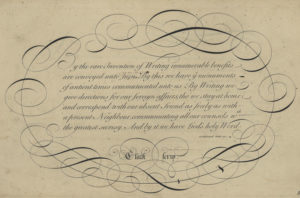 By the rare Invention of Writing innumerable benefits
are conveyed unto Us. By this we have ye monuments
of antient times communicated unto us. By Writing we
give directions for our foreign affairs, tho we stay at home
and correspond with our absent friend as freely as with
a present Neighbour communicating all our counsels in
the greatest secrecy. And by it we have Gods holy Word